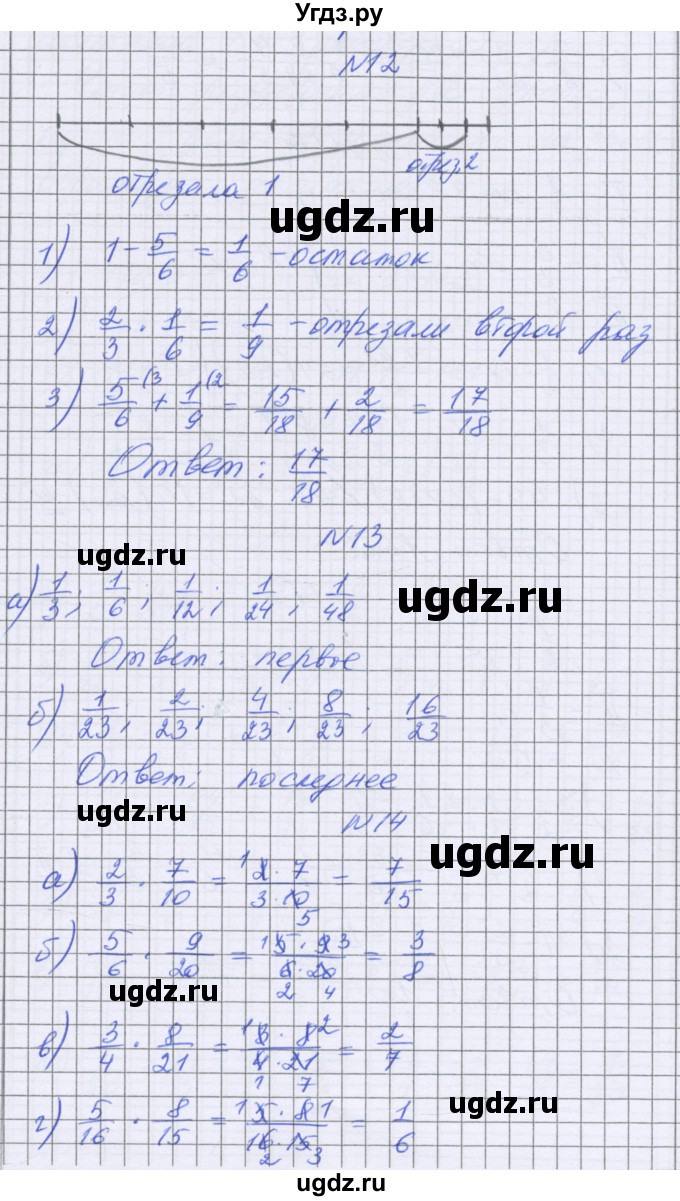 Угдз.ру
N12
отрезала 1 отрез.2
ugdz.ru
1) 1 - 5/6 = 1/6 - остаток
2) 2/3 · 1/6 = 1/9 - отрезали второй раз
3) 5/6 (3 + 1/9 (2 = 15/18 + 2/18 = 17/18
Ответ: 17/18
N13
ugdz.ru
ugdz.ru
а) 1/3; 1/6; 1/12; 1/24; 1/48
Ответ: первое
б) 1/23; 2/23; 4/23; 8/23; 16/23
Ответ: последнее
ugdz.ru
N14
ugdz.ru
а) 2/3 · 7/10 = 1 2 · 7/3 · 10 5 = 7/15
б) 5/6 · 9/20 = 1 5 · 9 3/6 · 20 2 4 = 3/8
ugdz.ru
в) 3/4 · 8/21 = 1 3 · 8 2/4 · 21 1 7 = 2/7
ugdz.ru
г) 5/16 · 8/15 = 1 5 · 8 1/16 · 15 2 3 = 1/6
ugdz.ru